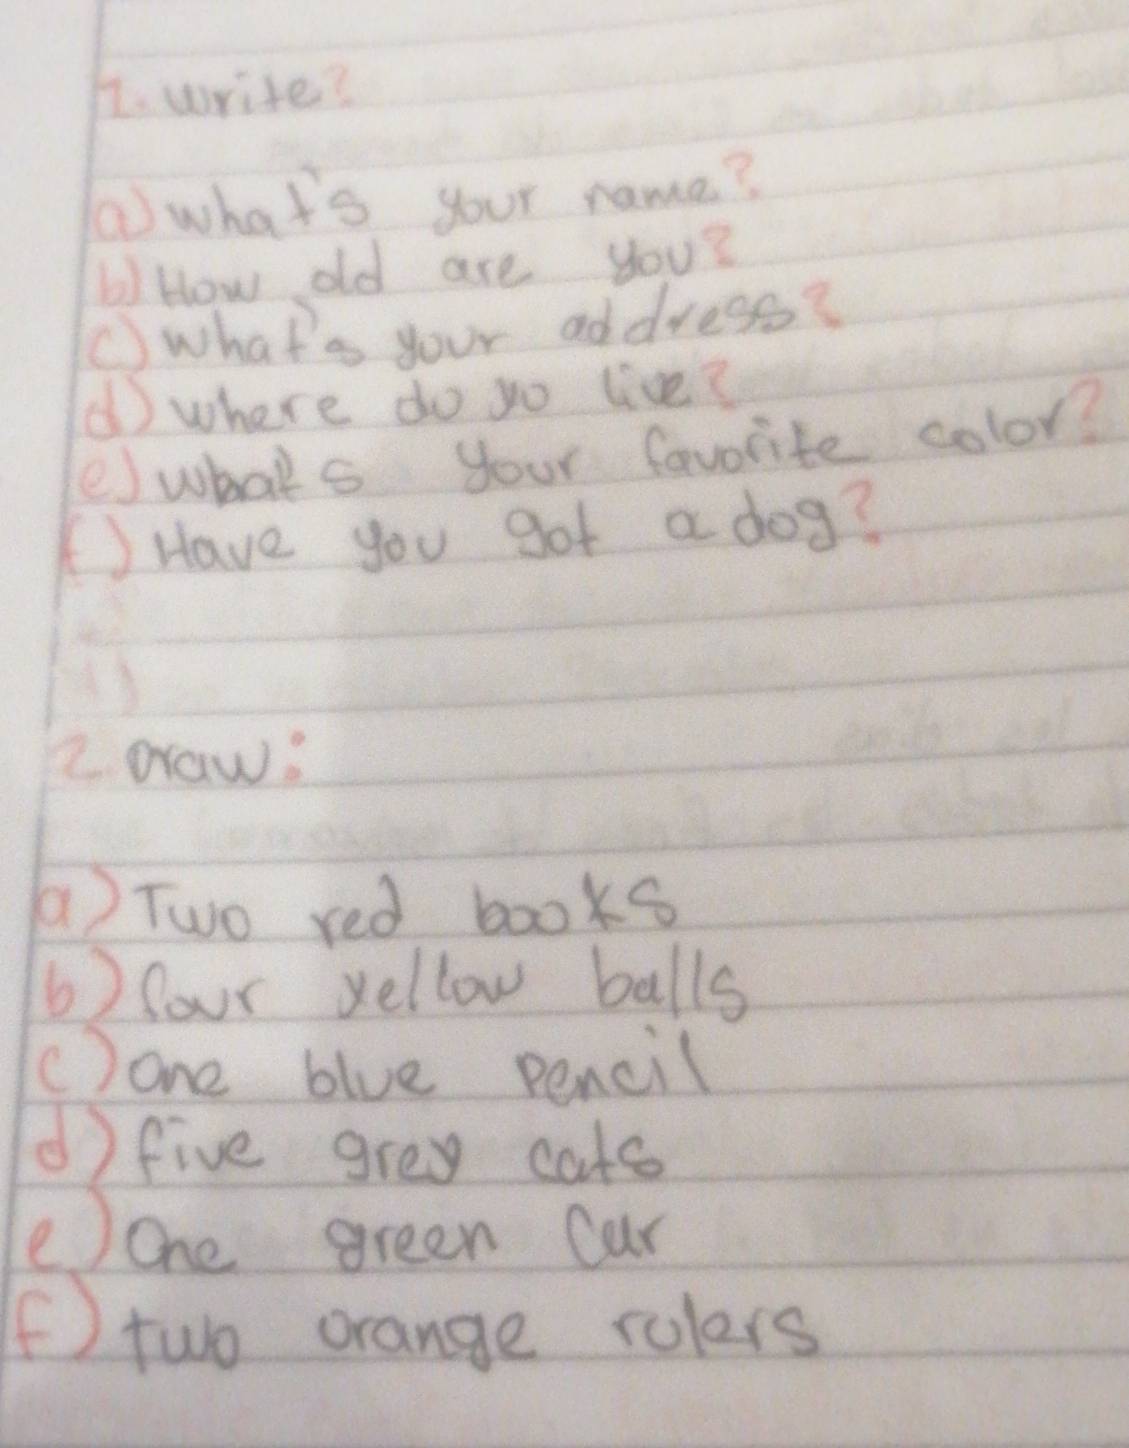 1. write?
a) what's your name?
b) How old are you?
c) what's your address?
d) where do yo live?
e) what's your favorite color?
f) Have you got a dog?
2. Draw:
a) Two red books
b) four yellow balls
c) one blue pencil
d) five grey cats
e) One green car
f) two orange rulers